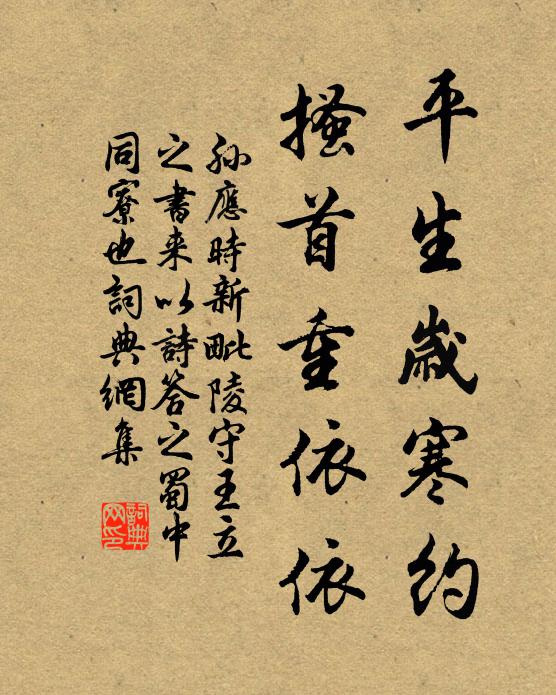 平生歲寒約
搔首重依依
孫應時新毗陵守王立
之書来以詩答之蜀中
同寮也詞典網集
詞典
网印